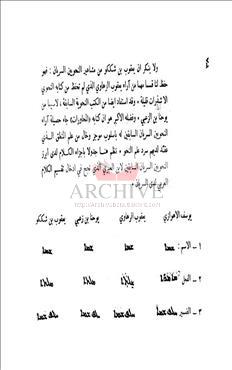 ٤
ولا ينكر ان يعقوب بن شككو من مشاهير النحويين السريان : فهو
حفظ لنا قسما مهما من آراء يعقوب الرهاوي الذي لم تحفظ من كتابه النحوي
الا شذرات قليلة ، وقد استفاد ايضا من الكتب النحوية السابقة ، لا سيما من
يوحنا بن زعبي ، وفضله الاكبر هو ان كتابه جاء حصيلة آراء
النحويين السريان السابقين له باسلوب موجز وخال من علم المنطق الذي
لديهم سرد علم النحو ، نظم هنا جدولا باجزاء الكلام لدى ابرز
النحويين السريان السابقين لابن العبري الذي نجح في ادخال تقسيم الكلام
العربي الى السريان .
ARCHIVE
يوسف الاهوازي يعقوب الرهاوي يوحنا بن زعبي يعقوب بن شككو
١ – الاسم : ܫܡܐ ܫܡܐ ܫܡܐ ܫܡܐ
٢ – الفعل
٣ – الضمير